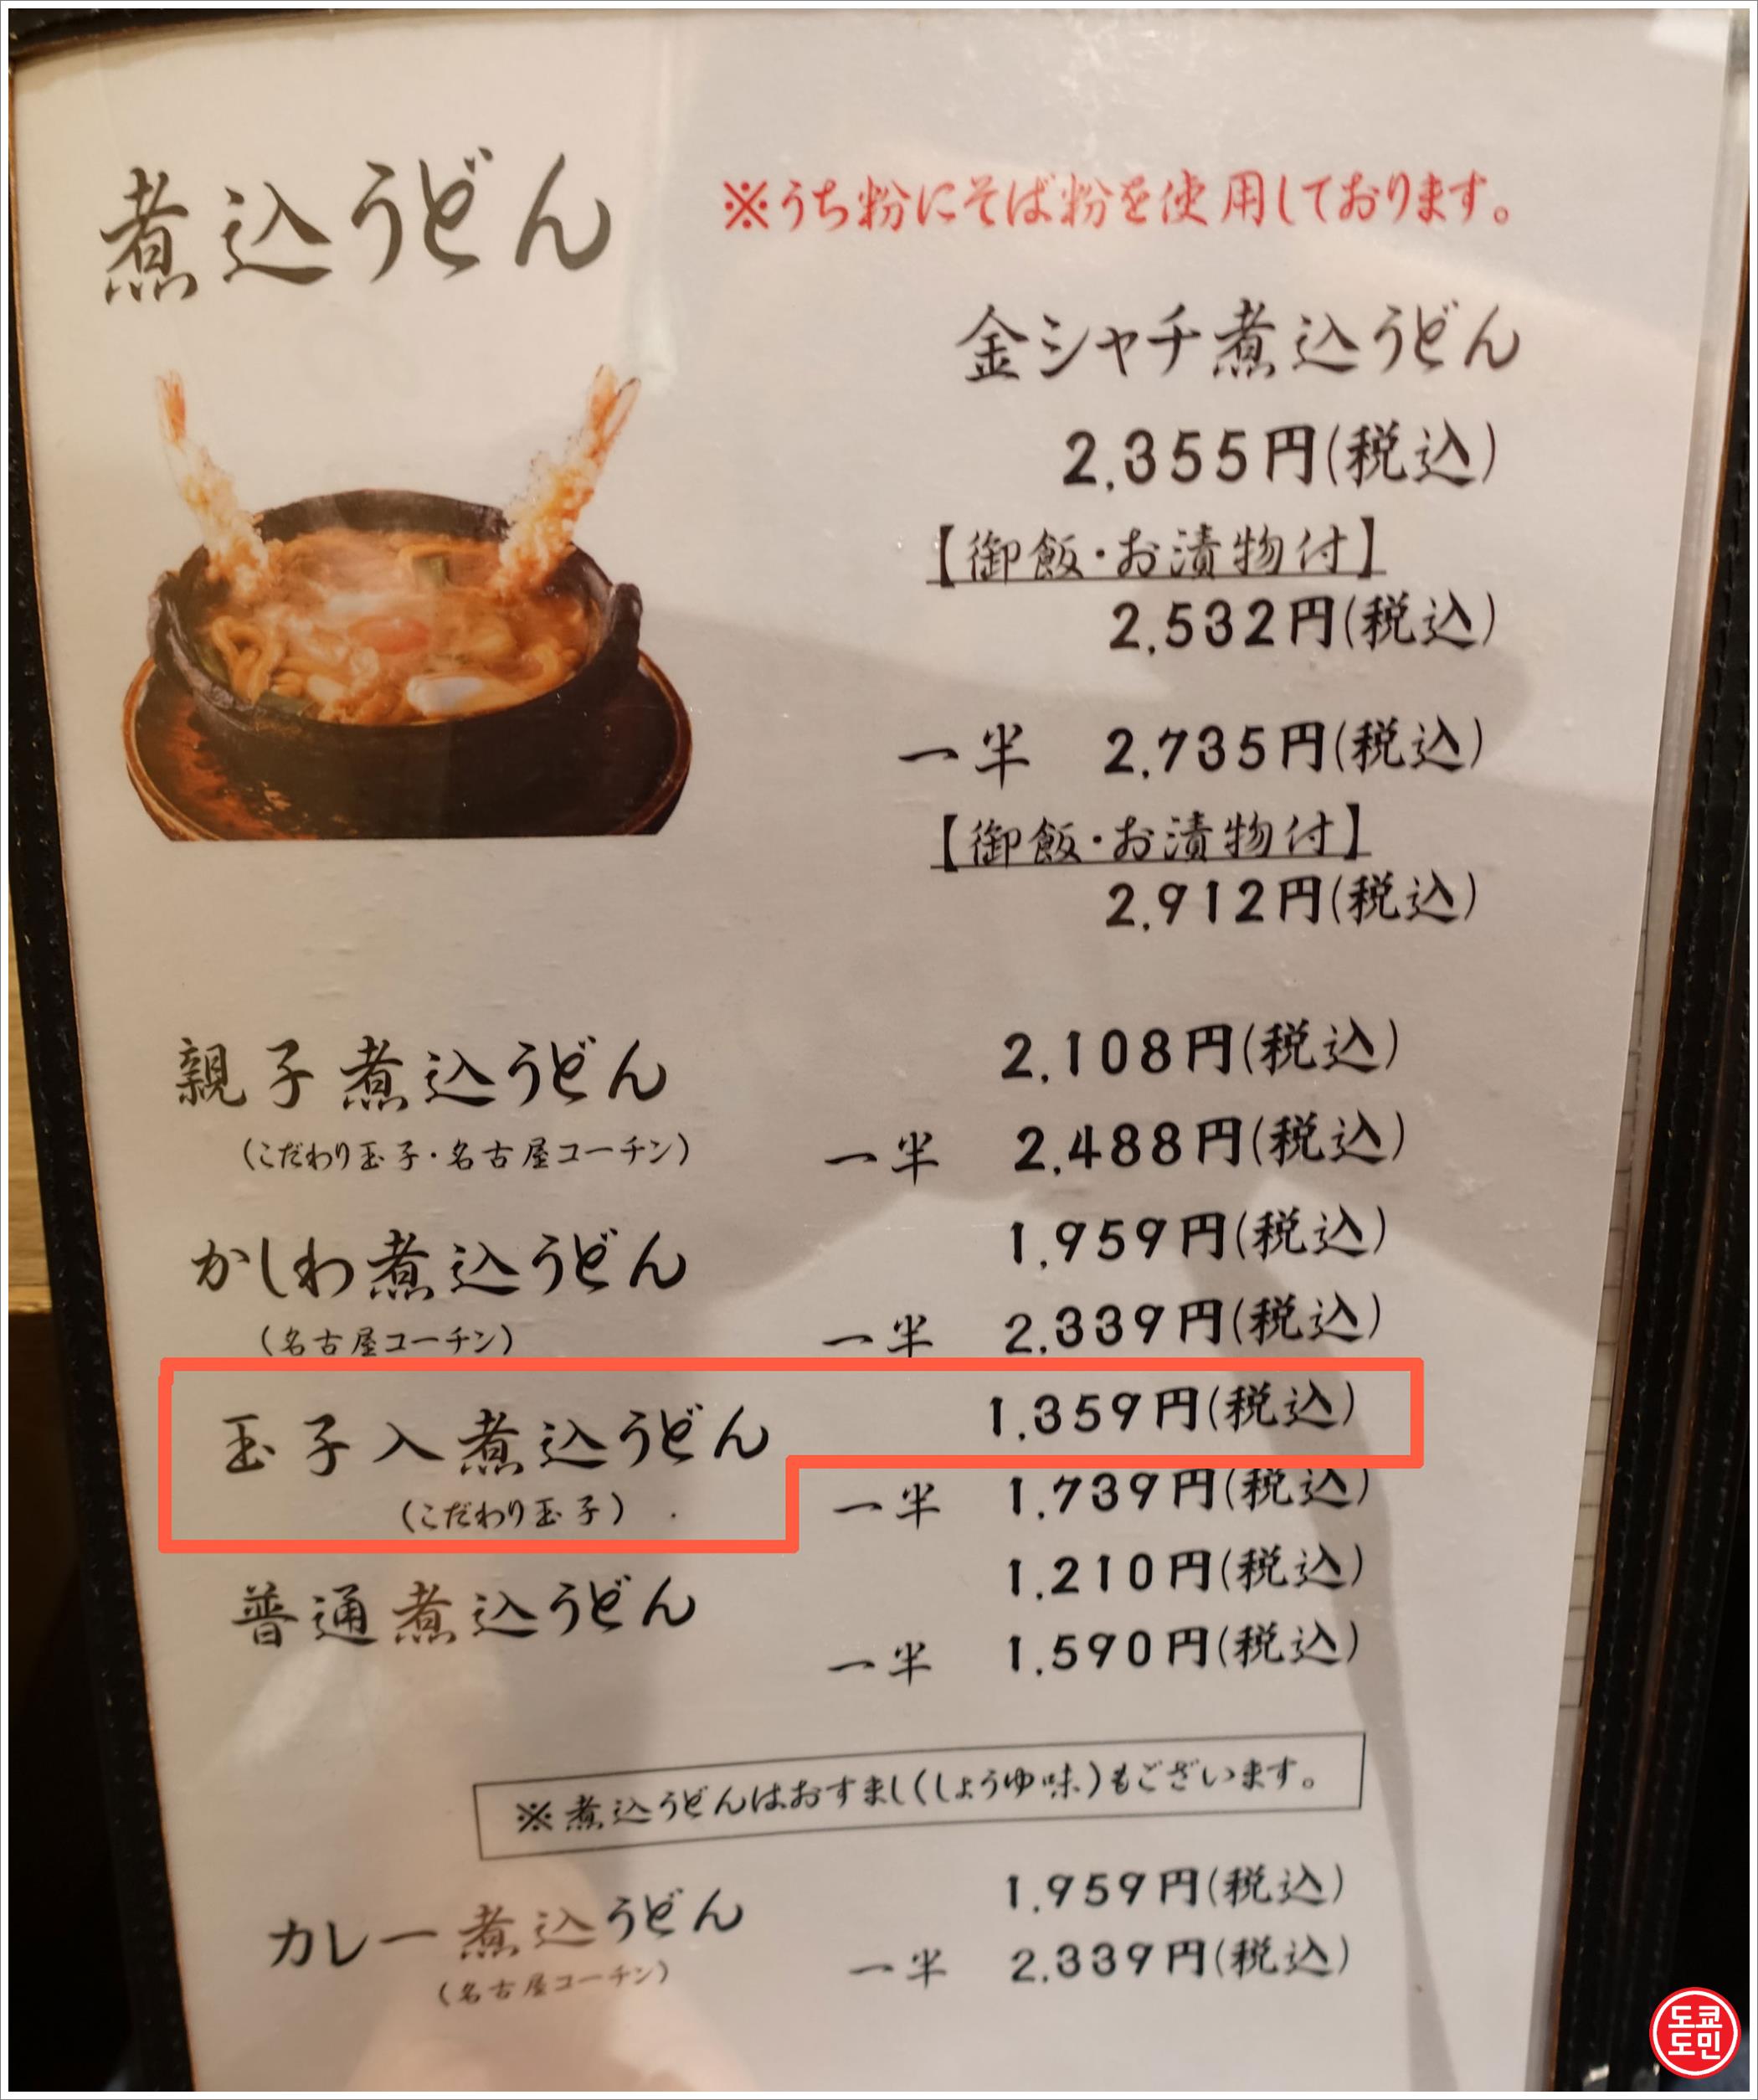 煮込うどん
※うち粉にそば粉を使用しております。
金シャチ煮込うどん
2,355円(税込)
【御飯・お漬物付】
2,532円(税込)
一半 2,735円(税込)
【御飯・お漬物付】
2,912円(税込)
親子煮込うどん 2,108円(税込)
(こだわり玉子・名古屋コーチン) 一半 2,488円(税込)
かしわ煮込うどん 1,959円(税込)
(名古屋コーチン) 一半 2,339円(税込)
玉子入煮込うどん 1,359円(税込)
(こだわり玉子) 一半 1,739円(税込)
普通煮込うどん 1,210円(税込)
一半 1,590円(税込)
※煮込うどんはおすまし(しょうゆ味)もございます。
カレー煮込うどん 1,959円(税込)
(名古屋コーチン) 一半 2,339円(税込)
도쿄
도민